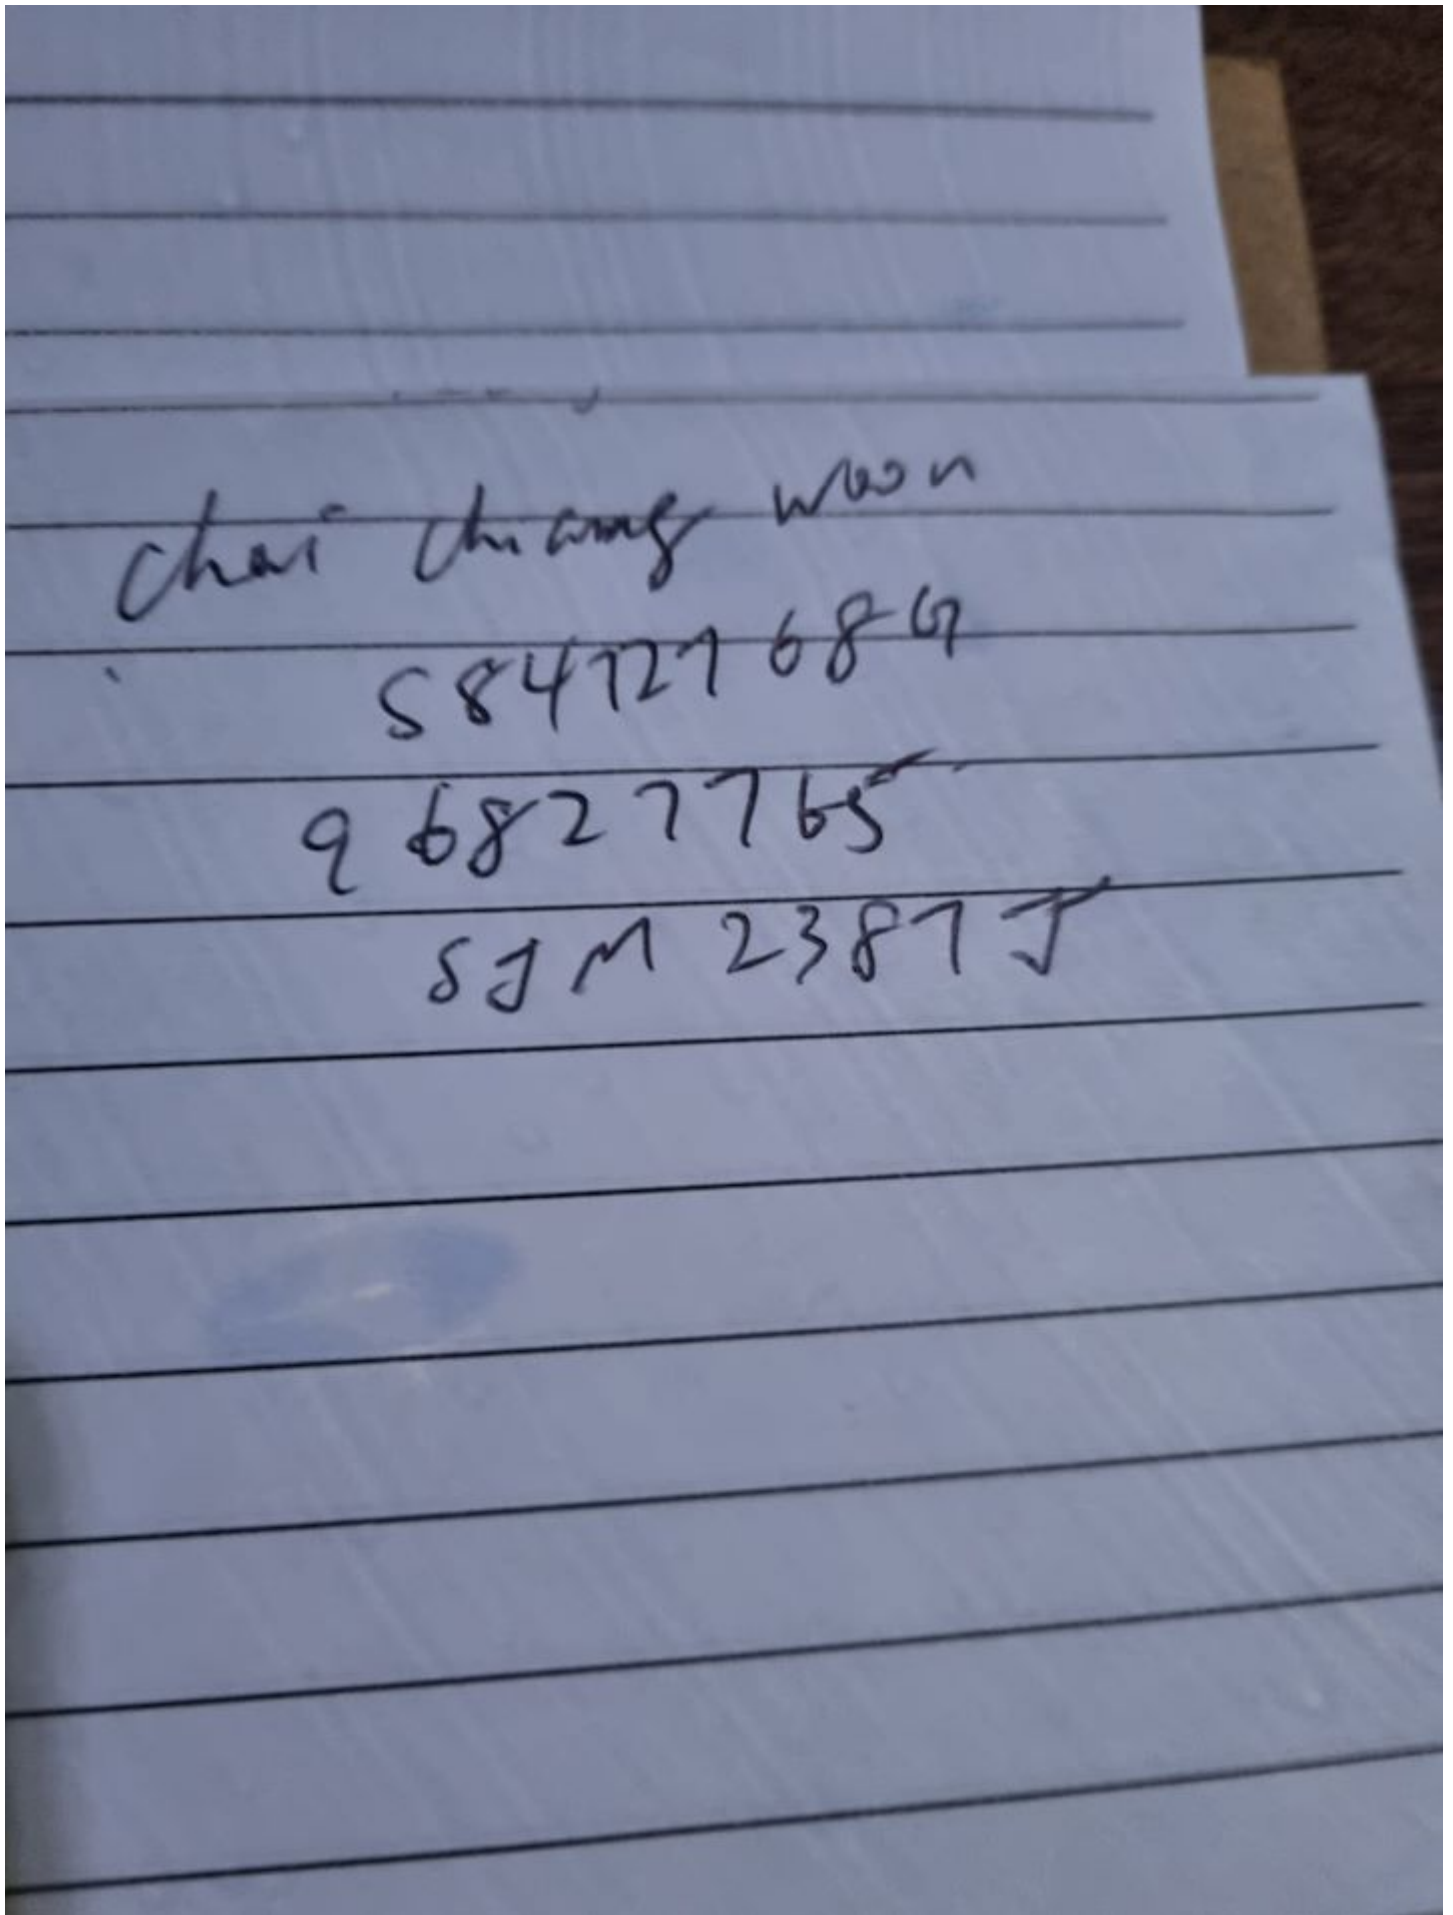 Chai Chiang Woon
S8472768G
96827765
SJM 2387J